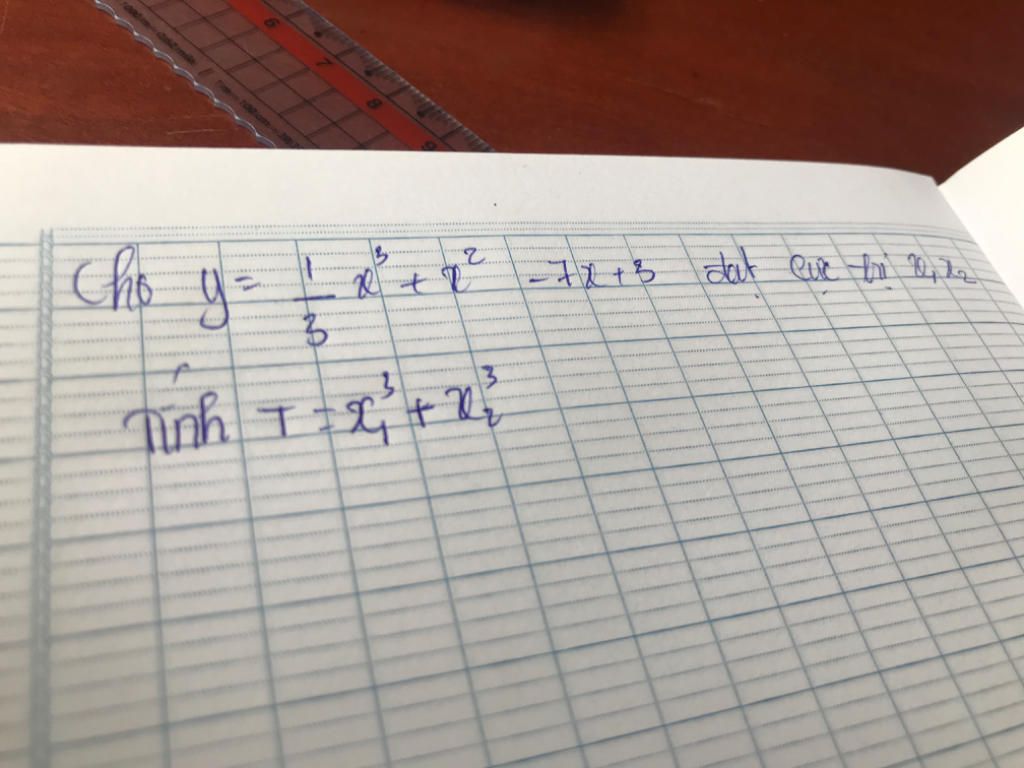 6 7 8 9
Cho y = 1/3 x³ + x² - 7x + 3 đạt cực trị x₁, x₂
Tính T = x₁³ + x₂³